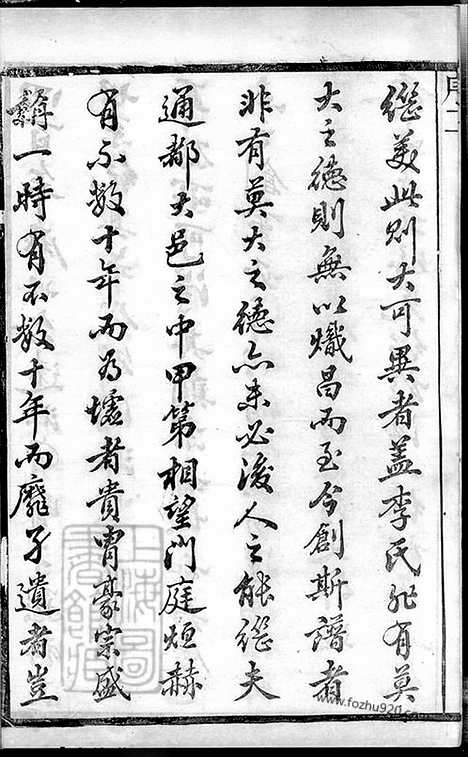 序二
繼美此則大可異者蓋李氏非有莫
大之德則無以熾昌而至今創斯譜者
非有莫大之德亦未必後人之能繼夫
通都大邑之中甲第相望門庭烜赫
有不數十年而為墟者貴胄豪宗盛
一時有不數十年而靡孑遺者豈
上海圖書館藏
www.fozhu920.com